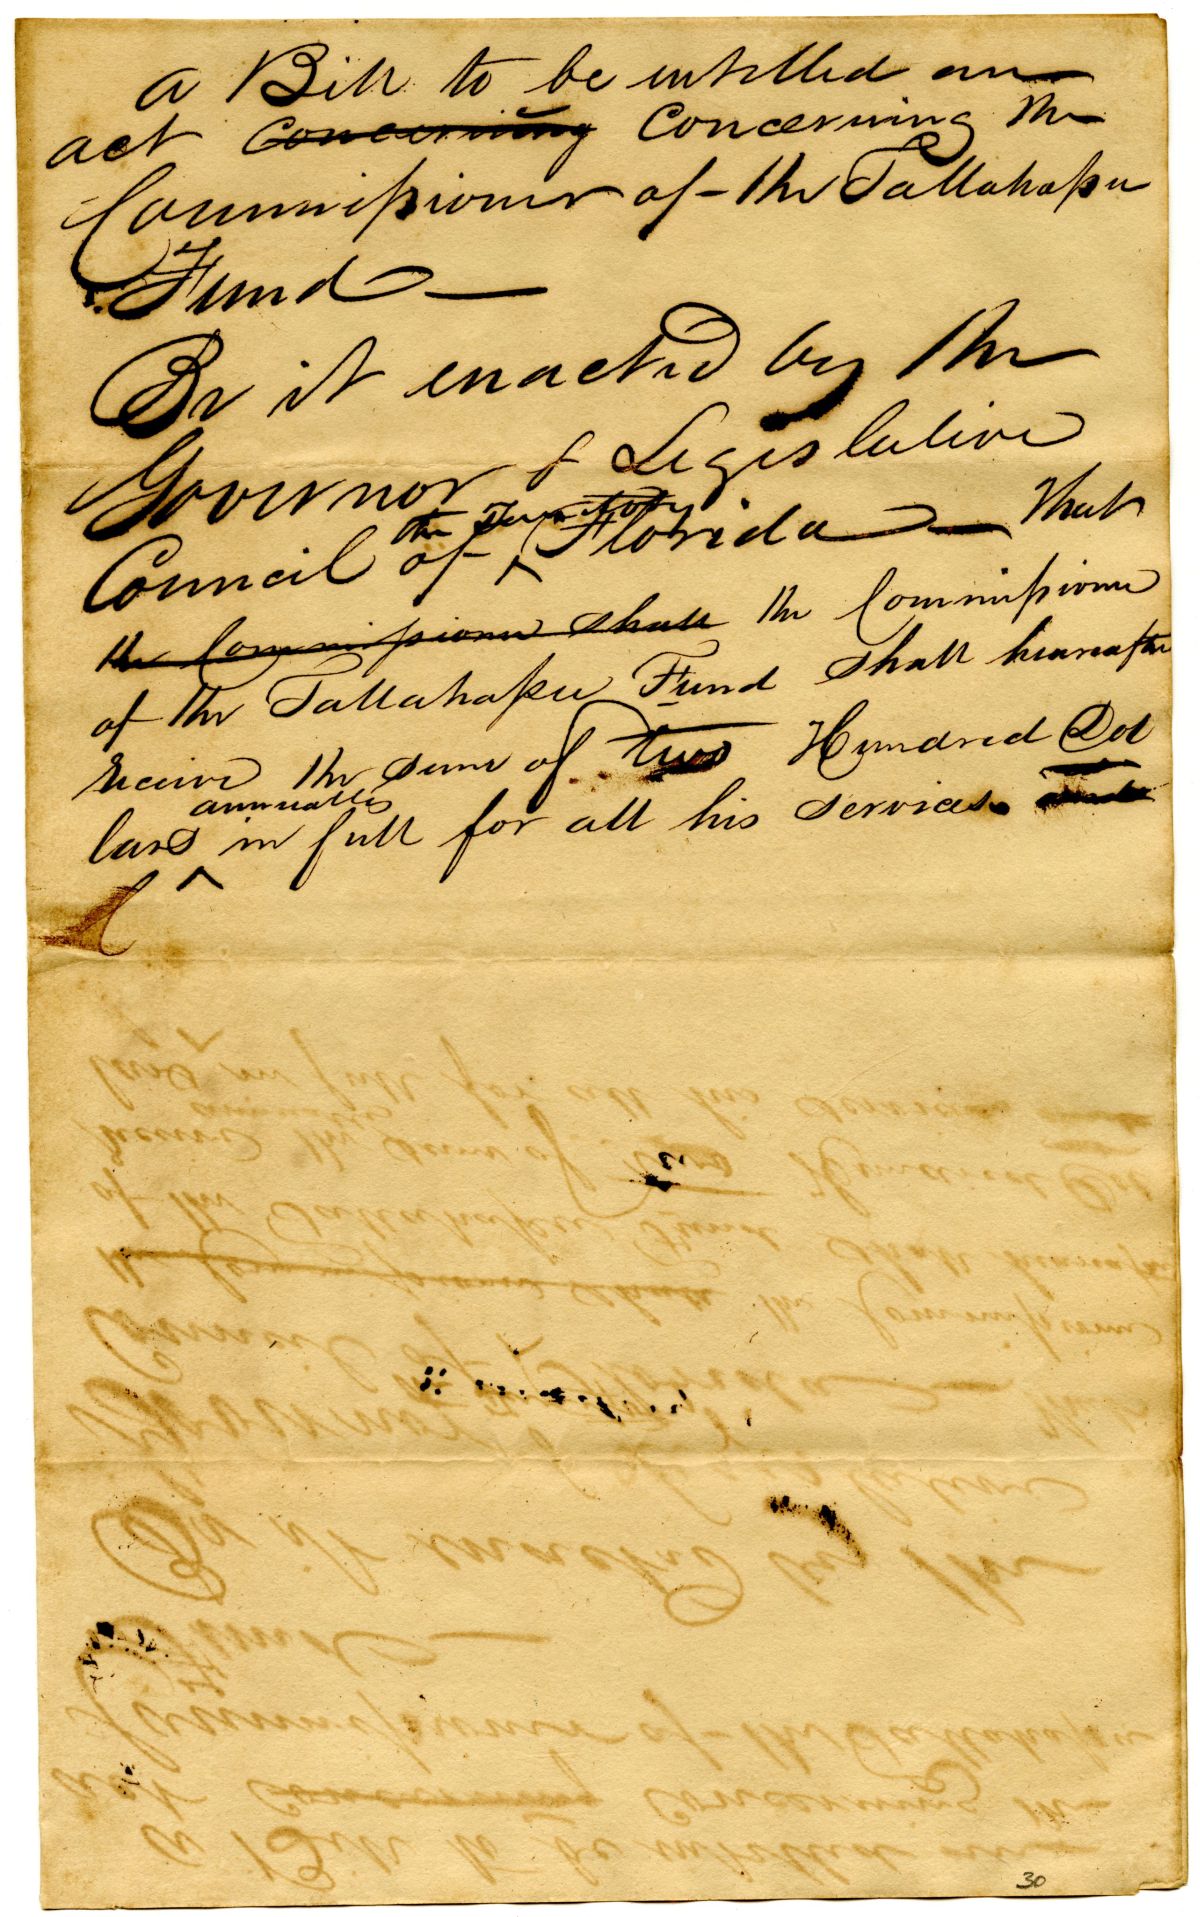 a Bill to be intitled an
act Concerning Concerning the
Commissioner of the Tallahassee
Fund —
Be it enacted by the
Governor & Legislative
the Territory
Council of ^ Florida — That
the Commissioner shall the Commissioner
of the Tallahassee Fund shall hereafter
receive the sum of two Hundred Dol
annually
lars ^ in full for all his services.
30